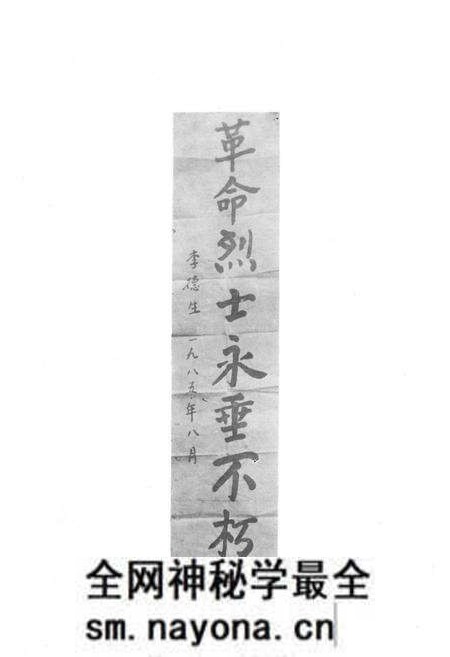 革命烈士永垂不朽
李德生 一九八五年八月
全网神秘学最全
sm.nayona.cn